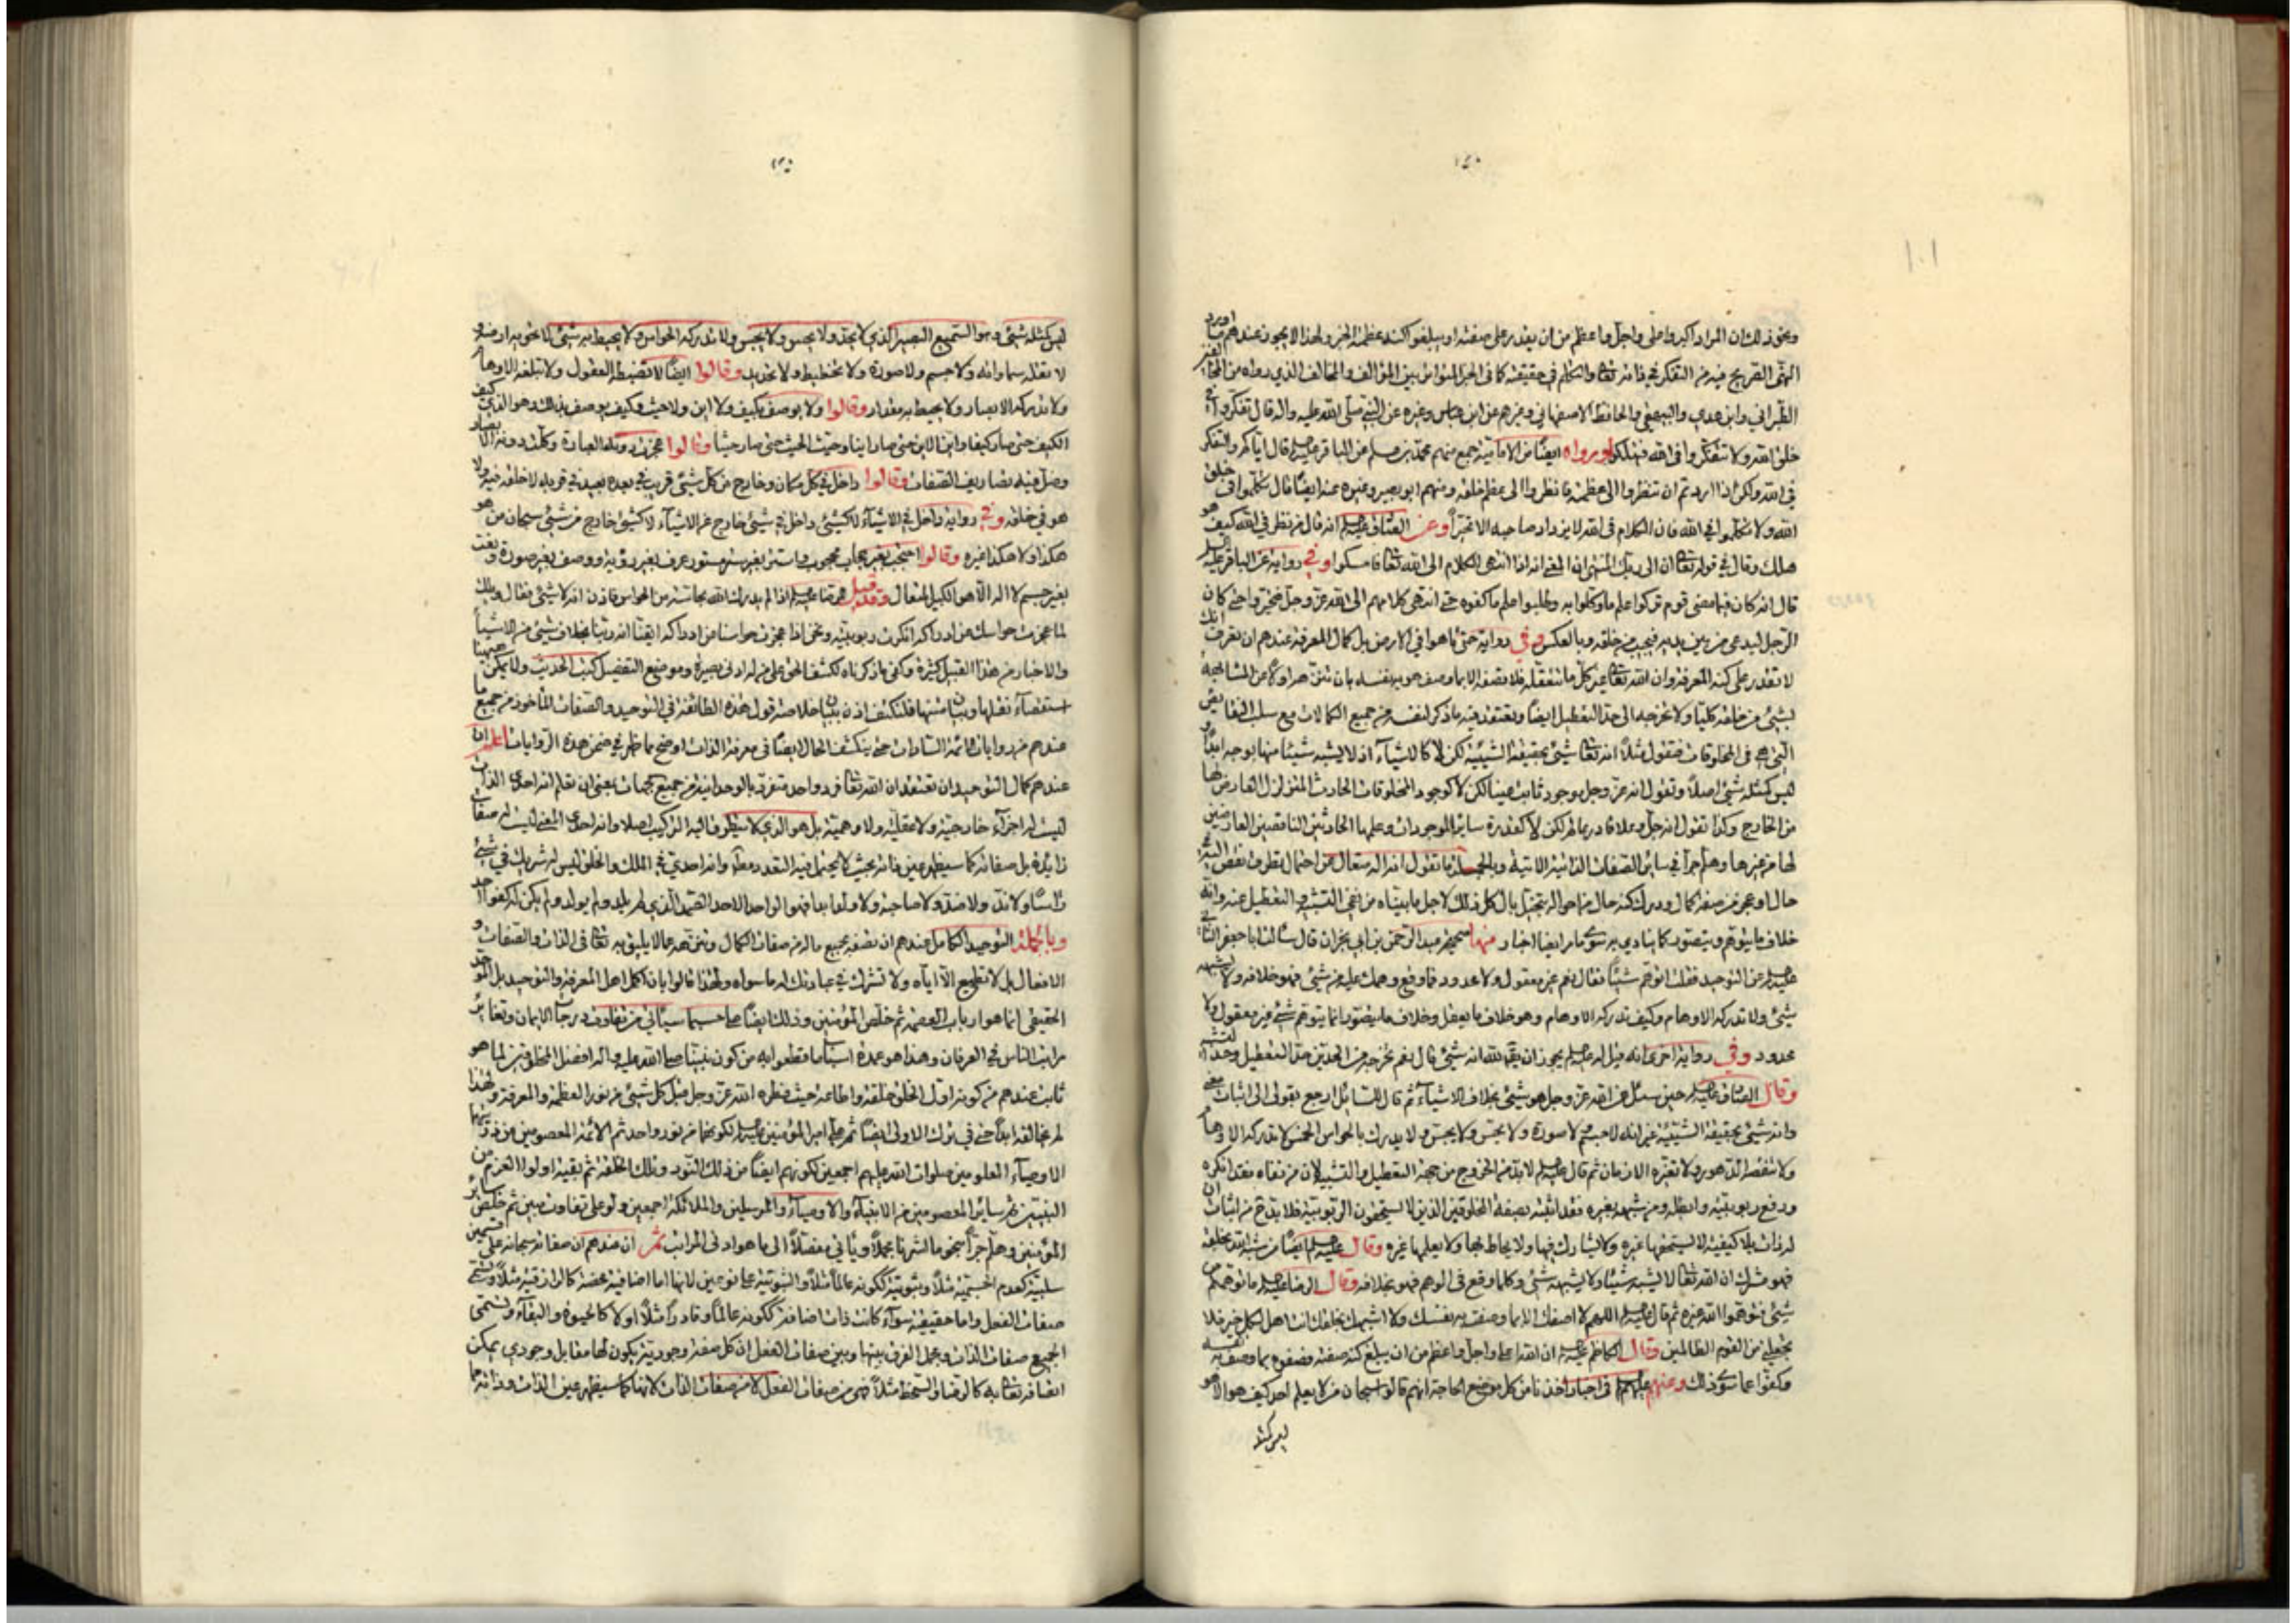 ١٠١
ونحو ذلك ان المراد اكبر واعلى واجل واعظم من ان يقدر على صفته او يبلغوا كنه عظمته الخبر ولهذا لا يجوز عندهم ما ورد
النهى الصريح فيه من التفكر في ذاته تعالى والتكلم في حقيقته كما في الخبر المتواتر بين المؤالف والمخالف الذي رواه من
الطبراني وابن عدي والبيهقي والحافظ الاصفهاني وغيرهم عن ابن عباس وغيره عن النبي صلى الله عليه واله قال تفكروا في
خلق الله ولا تتفكروا في الله فتهلكوا ورواه ايضا من الامامية جمع منهم محمد بن مسلم عن الباقر عليه قال اياكم والتفكر
في الله ولكن اذا اردتم ان تنظروا الى عظمته فانظروا الى عظم خلقه ومنهم ابو بصير وغيره عنه ايضا قال تكلموا في خلق
الله ولا تتكلموا في الله فان الكلام في الله لا يزداد صاحبه الا تحيرا وعن الصادق عليه انه قال من نظر في الله كيف هو
هلك وقال في قوله تعالى ان الى ربك المنتهى ان المعنى انه اذا انتهى الكلام الى الله تعالى فامسكوا وفي رواية عن الباقر عليه
قال انه كان فيما مضى قوم تركوا علم ما وكلوا به وطلبوا علم ما كفوه حتى انتهى كلامهم الى الله عز وجل فتحيروا حتى كان
الرجل ليدعى من بين يديه فيجيب من خلفه وبالعكس وفي رواية حتى تاهوا في الارض بل كمال المعرفة عندهم ان تعرف انك
لا تقدر على كنه المعرفة وان الله تعالى غير كل ما تتعقله فلا تصفه الا بما وصف هو به نفسه بان تنزهه اولا عن المشابهة
لشيء من خلقه كليا ولا تخرجه الى حد التعطيل ايضا وتعتقد فيه ما ذكر لنفسه من جميع الكمالات مع سلب النقايص
التي هي في المخلوقات فتقول مثلا انه تعالى شيء بحقيقة الشيئية لكن لا كالاشياء اذ لا يشبه شيئا منها بوجه ابدا و
ليس كمثله شيء اصلا وتقول انه عز وجل موجود ثابت عينا لكن لا كوجود المخلوقات الحادث المتزلزل العارض لها
من الخارج وكذا تقول انه جل وعلا قادر عالم لكن لا كقدرة ساير الموجودات وعلمها الحادثين الناقصين العارضين
لها من غيرها وهلم جرا في ساير الصفات الذاتية الاتية وبالجملة ما تقول انه اله متعال عن احتمال تطرق نقص البتة
خلاف ما يتوهم ويتصور كما ينادي به سوى ما مر ايضا اخبار منها صحيحة عبد الرحمن بن ابي نجران قال سالت ابا جعفر الثاني
عليه عن التوحيد فقلت اتوهم شيئا فقال نعم غير معقول ولا محدود فما وقع وهمك عليه من شيء فهو خلافه ولا يشبهه
شيء ولا تدركه الاوهام وكيف تدركه الاوهام وهو خلاف ما يعقل وخلاف ما يتصور انما يتوهم شيء غير معقول ولا
محدود وفي رواية اخرى انه قيل له عليه يجوز ان يقال لله انه شيء قال نعم تخرجه من الحدين حد التعطيل وحد التشبيه
وقال الصادق عليه حين سئل عن الله عز وجل هو شيء بخلاف الاشياء ثم قال للسائل ارجع بقولي الى اثبات معنى
وانه شيء بحقيقة الشيئية غير انه لا جسم ولا صورة ولا يحس ولا يجس ولا يدرك بالحواس الخمس لا تدركه الاوهام
ولا تنقصه الدهور ولا تغيره الازمان ثم قال عليه لا بد من الخروج من جهة التعطيل والتشبيه لان من نفاه فقد انكره
ودفع ربوبيته وابطله ومن شبهه بغيره فقد اثبته بصفة المخلوقين الذين لا يستحقون الربوبية فلا بد من اثبات ان
له ذات بلا كيفية لا يستحقها غيره ولا يشارك فيها ولا يحاط بها ولا يعلمها غيره وقال عليه ايضا من شبه الله بخلقه
فهو مشرك ان الله تعالى لا يشبه شيئا ولا يشبهه شيء وكلما وقع في الوهم فهو بخلافه وقال الرضا عليه ما توهمتم من
شيء فتوهموا الله غيره ثم قال عليه اللهم لا اصفك الا بما وصفت به نفسك ولا اشبهك بخلقك انت اهل لكل خير فلا
تجعلني من القوم الظالمين وقال الكاظم عليه ان الله اعلى واجل واعظم من ان يبلغ كنه صفته فصفوه بما وصف به نفسه
وكفوا عما سوى ذلك وعنهم عليهم في اخبار اخذنا من كل موضع الحاجة انهم قالوا سبحان من لا يعلم احد كيف هو الا هو
ليس كمثله
ليس كمثله شيء وهو السميع البصير الذي لا يحد ولا يحس ولا يجس ولا تدركه الحواس ولا يحيط به شيء لا تحويه ارضه و
لا تقله سماواته ولا جسم ولا صورة ولا تخطيط ولا تحديد وقالوا ايضا لا تضبطه العقول ولا تبلغه الاوهام
ولا تدركه الابصار ولا يحيط به مقدار وقالوا ولا يوصف بكيف ولا اين ولا حيث وكيف يوصف بذلك وهو الذي كيف
الكيف حتى صار كيفا واين الاين حتى صار اينا وحيث الحيث حتى صار حيثا وقالوا عجزت دونه العبارة وكلت دونه الابصار
وضل فيه تصاريف الصفات وقالوا داخل في كل مكان وخارج من كل شيء قريب في بعده بعيد في قربه لا خلقه فيه ولا
هو في خلقه وفي رواية داخل في الاشياء لا كشيء داخل في شيء خارج عن الاشياء لا كشيء خارج من شيء سبحان من هو
هكذا ولا هكذا غيره وقالوا احتجب بغير حجاب محجوب واستتر بغير ستر مستور عرف بغير رؤية ووصف بغير صورة ونعت
بغير جسم لا اله الا هو الكبير المتعال وقد قيل للرضا عليه اذا لم يدرك الله بحاسة من الحواس فاذن انه لا شيء فقال ويلك
لما عجزت حواسك عن ادراكه انكرت ربوبيته ونحن اذا عجزت حواسنا عن ادراكه ايقنا انه ربنا بخلاف شيء من الاشياء
والاخبار من هذا القبيل كثيرة وكفى ما ذكرناه لكشف الحق على من له ادنى بصيرة وموضع التفصيل كتب الحديث ولا يمكن ههنا
استقصاء نقلها وبيان متنها فلنكشف اذن ببيان خلاصة قول هذه الطائفة في التوحيد والصفات الماخوذ من جميع ما
عندهم من روايات ائمة السادات حتى ينكشف الحال ايضا في معرفة الذات اوضح مما ظهر في ضمن هذه الروايات اعلم ان
عندهم كمال التوحيد ان تعتقد ان الله تعالى فرد واحد متفرد بالوحدانية من جميع الجهات بمعنى ان تعلم انه احدي الذات
ليست له اجزاء خارجية ولا عقلية ولا وهمية بل هو الذي لا يتطرق اليه التركيب اصلا وانه احدي المعنى ليست له صفات
زايدة بل صفاته كما سيظهر عين ذاته بحيث لا يحتمل فيه التعدد مطلقا وانه احدي في الملك والخلق ليس له شريك في شيء
راسا ولا ند ولا ضد ولا صاحبة ولا ولدا بدا فهو الواحد الاحد الصمد الذي لم يلد ولم يولد ولم يكن له كفوا احد
وبالجملة التوحيد الكامل عندهم ان تصفه بجميع ما له من صفات الكمال وتنزهه عما لا يليق به تعالى في الذات والصفات و
الافعال بل لا تطيع الا اياه ولا تشرك في عبادتك له ما سواه ولهذا قالوا بان اكمل اهل المعرفة والتوحيد بل الموحد
الحقيقي انما هو ارباب العصمة ثم خلص المؤمنين وذلك ايضا على حسب ما سياتي من تفاوت درجات الايمان وتغاير
مراتب الناس في العرفان وهذا هو عمدة اسباب ما قطعوا به من كون نبينا صلى الله عليه واله افضل المخلوقين لما هو
ثابت عندهم من كونه اول الخلق خلقة واطاعة حيث فطره الله عز وجل قبل كل شيء من نور العظمة والمعرفة ولهذا
لم يخالفه ابدا حتى في ترك الاولى ايضا ثم علي امير المؤمنين عليه لكونهما من نور واحد ثم الائمة المعصومين من ذريتهما
الاوصياء المعلومين صلوات الله عليهم اجمعين لكونهم ايضا من ذلك النور وتلك الخلقة ثم بقية اولوا العزم من
النبيين ثم ساير المعصومين من الانبياء والاوصياء والمرسلين والملائكة اجمعين ولو على تفاوت بين ثم خلص ساير
المؤمنين وهلم جرا بنحو ما اشرنا مجملا وياتي مفصلا الى ما هو ادنى المراتب ثم ان عندهم ان صفاته سبحانه على قسمين
سلبية كعدم الجسمية مثلا وثبوتية ككونه عالما مثلا والثبوتية على نوعين لانها اما اضافية محضة كالرازقية مثلا وتسمى
صفات الفعل واما حقيقية سواء كانت ذات اضافة ككونه عالما وقادرا مثلا او لا كالحيوة والبقاء وتسمى
الجميع صفات الذات ومجمل الفرق بينها وبين صفات الفعل ان كل صفة وجودية يكون لها مقابل وجودي يمكن
اتصافه تعالى به كالرضا والسخط مثلا فهي من صفات الفعل لا من صفات الذات لانها كما سيظهر عين الذات وذاته مما